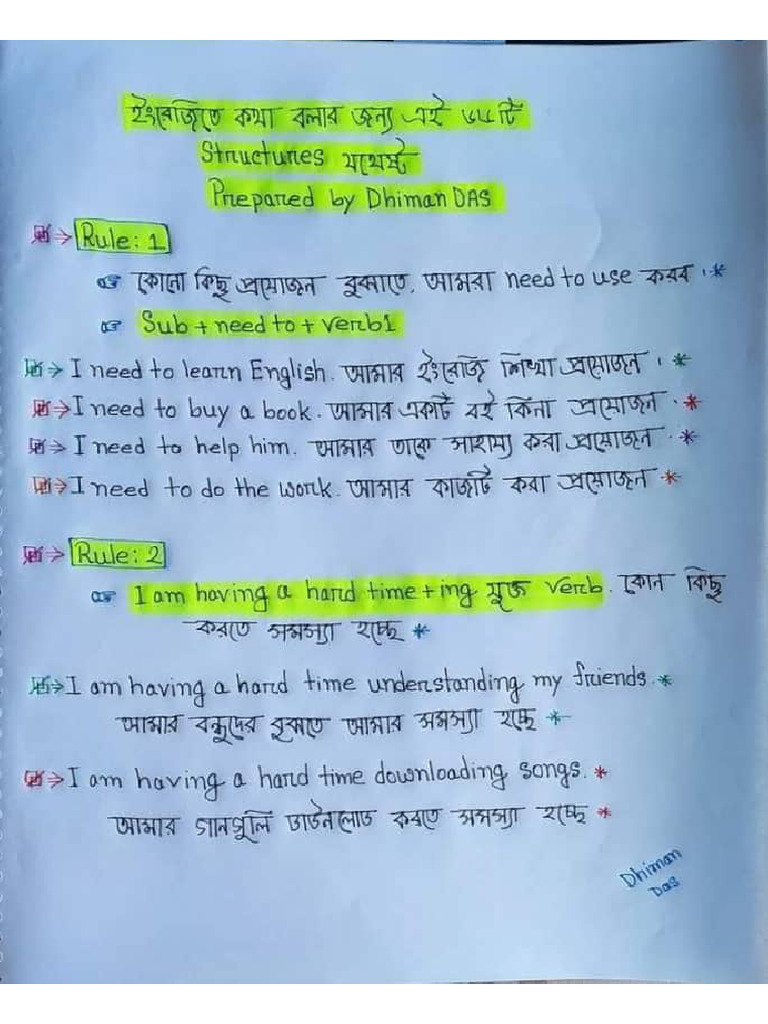 ইংরেজিতে কথা বলার জন্য এই ৬৫টি
Structures যথেষ্ট
Prepared by Dhiman DAS
Rule: 1
কোনো কিছু প্রয়োজন বুঝাতে, আমরা need to use করব।*
Sub + need to + verb1
I need to learn English. আমার ইংরেজি শিখা প্রয়োজন। *
I need to buy a book. আমার একটি বই কিনা প্রয়োজন. *
I need to help him. আমার তাকে সাহায্য করা প্রয়োজন. *
I need to do the work. আমার কাজটি করা প্রয়োজন *
Rule: 2
I am having a hard time + ing যুক্ত verb. কোন কিছু
করতে সমস্যা হচ্ছে *
I am having a hard time understanding my friends. *
আমার বন্ধুদের বুঝতে আমার সমস্যা হচ্ছে *
I am having a hard time downloading songs. *
আমার গানগুলি ডাউনলোড করতে সমস্যা হচ্ছে *
Dhiman
Das